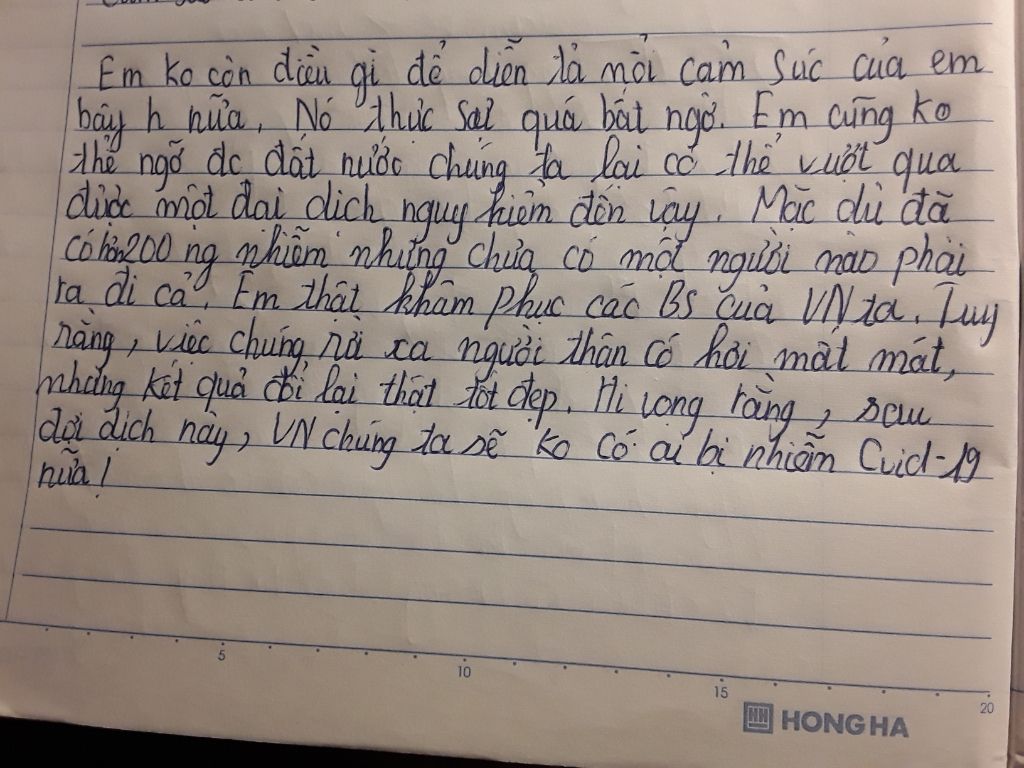 Em ko còn điều gì để diễn tả mỗi cảm súc của em
bây h nữa. Nó thực sự quá bất ngờ. Em cũng ko
thể ngờ đc đất nước chúng ta lại có thể vượt qua
được một đại dịch nguy hiểm đến vậy. Mặc dù đã
có hơn 200 ng nhiễm nhưng chưa có một người nào phải
ra đi cả. Em thật khâm phục các Bs của VN ta. Tuy
rằng, việc chúng rời xa người thân có hơi mất mát,
nhưng kết quả đổi lại thật tốt đẹp. Hi vọng rằng, sau
đợi dịch này, VN chúng ta sẽ ko có ai bị nhiễm Cvid-19
nữa!
5 10 15 20
HH HONG HA